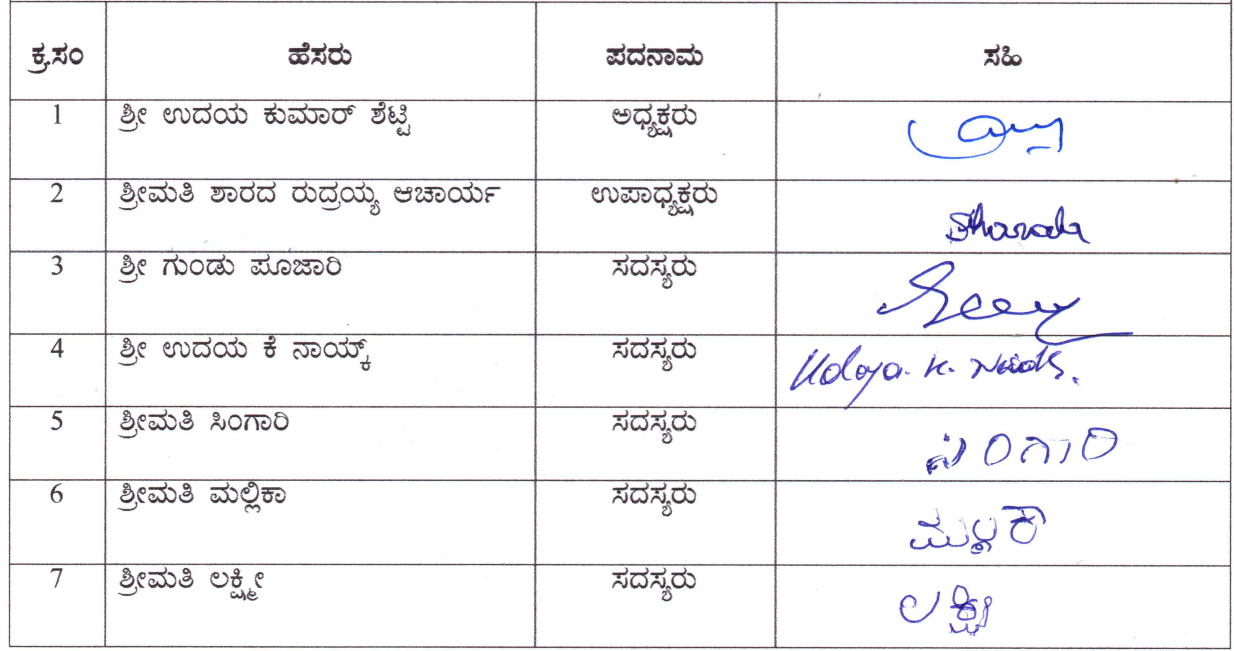 ಕ್ರ.ಸಂ ಹೆಸರು ಪದನಾಮ ಸಹಿ
1 ಶ್ರೀ ಉದಯ ಕುಮಾರ್ ಶೆಟ್ಟಿ ಅಧ್ಯಕ್ಷರು
2 ಶ್ರೀಮತಿ ಶಾರದ ರುದ್ರಯ್ಯ ಆಚಾರ್ಯ ಉಪಾಧ್ಯಕ್ಷರು Sharada
3 ಶ್ರೀ ಗುಂಡು ಪೂಜಾರಿ ಸದಸ್ಯರು
4 ಶ್ರೀ ಉದಯ ಕೆ ನಾಯ್ಕ್ ಸದಸ್ಯರು Udaya. K. Naik.
5 ಶ್ರೀಮತಿ ಸಿಂಗಾರಿ ಸದಸ್ಯರು ಸಿಂಗಾರಿ
6 ಶ್ರೀಮತಿ ಮಲ್ಲಿಕಾ ಸದಸ್ಯರು
7 ಶ್ರೀಮತಿ ಲಕ್ಷ್ಮೀ ಸದಸ್ಯರು ಲಕ್ಷ್ಮಿ